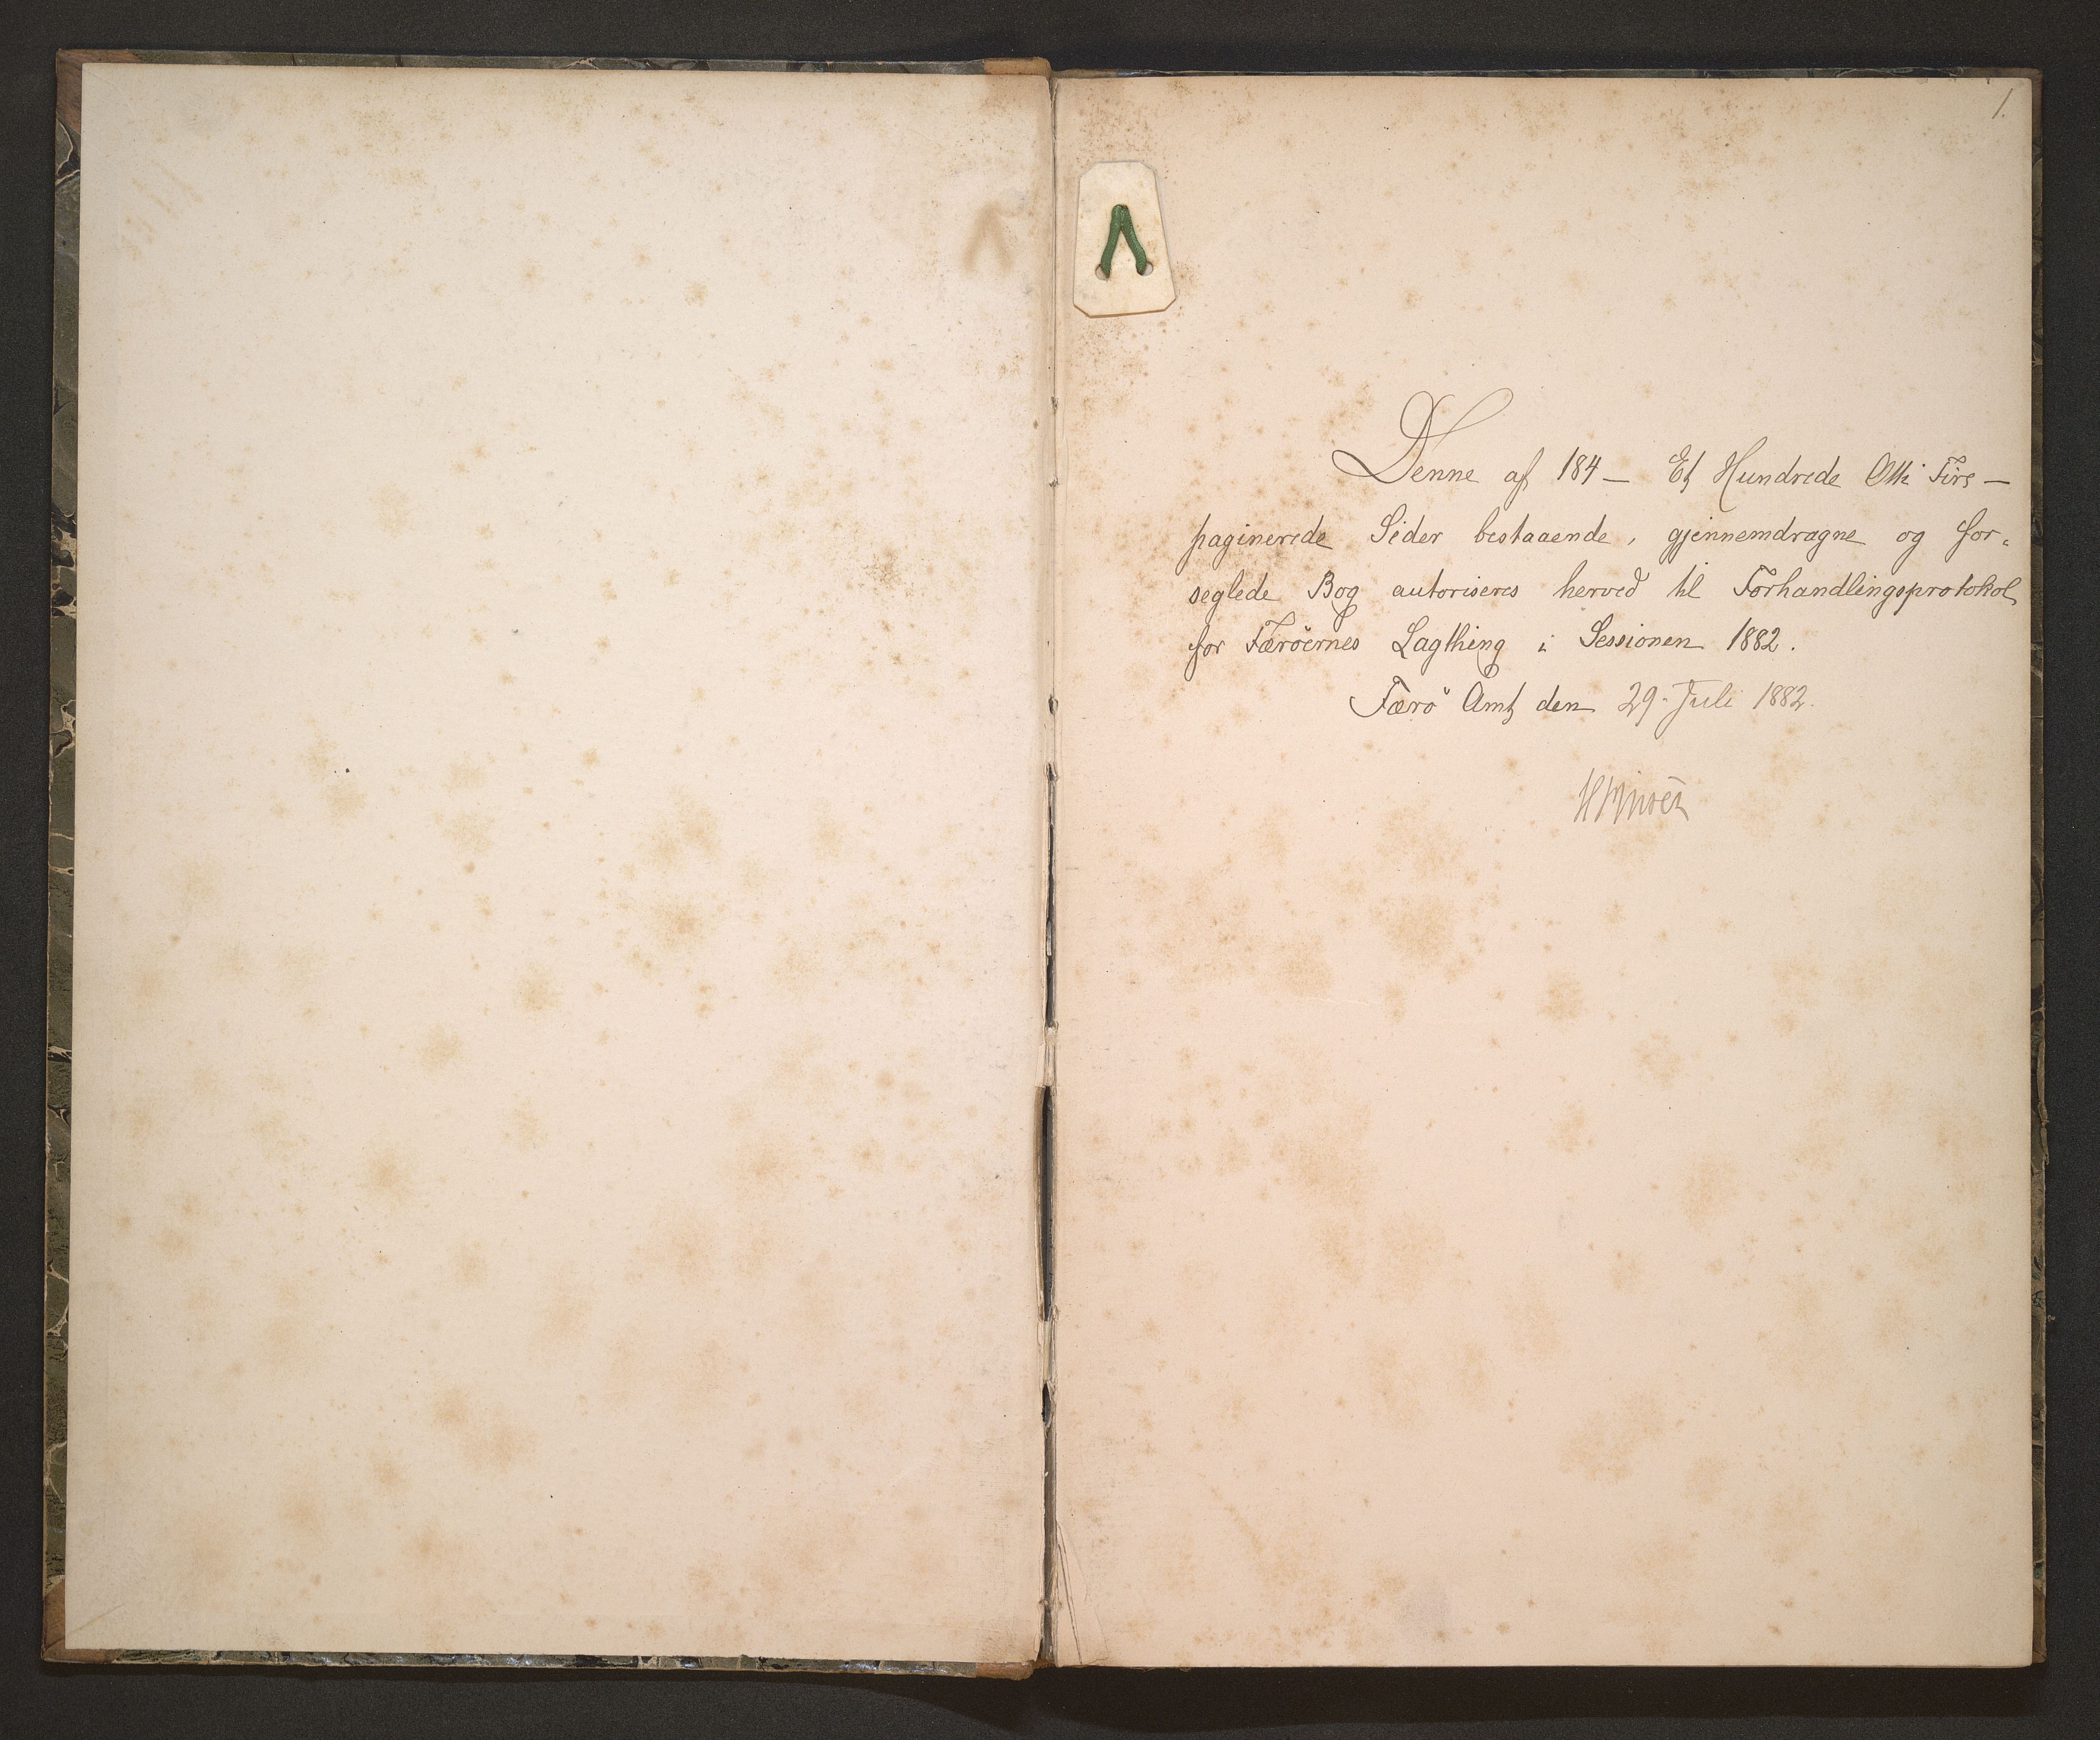 1.
Denne af 184 — Et Hundrede Otti Fire —
paginerede Sider bestaaende, gjennemdragne og for-
seglede Bog autoriseres herved til Forhandlingsprotokol
for Færöernes Lagthing i Sessionen 1882.
Færö Amt den 29. Juli 1882.